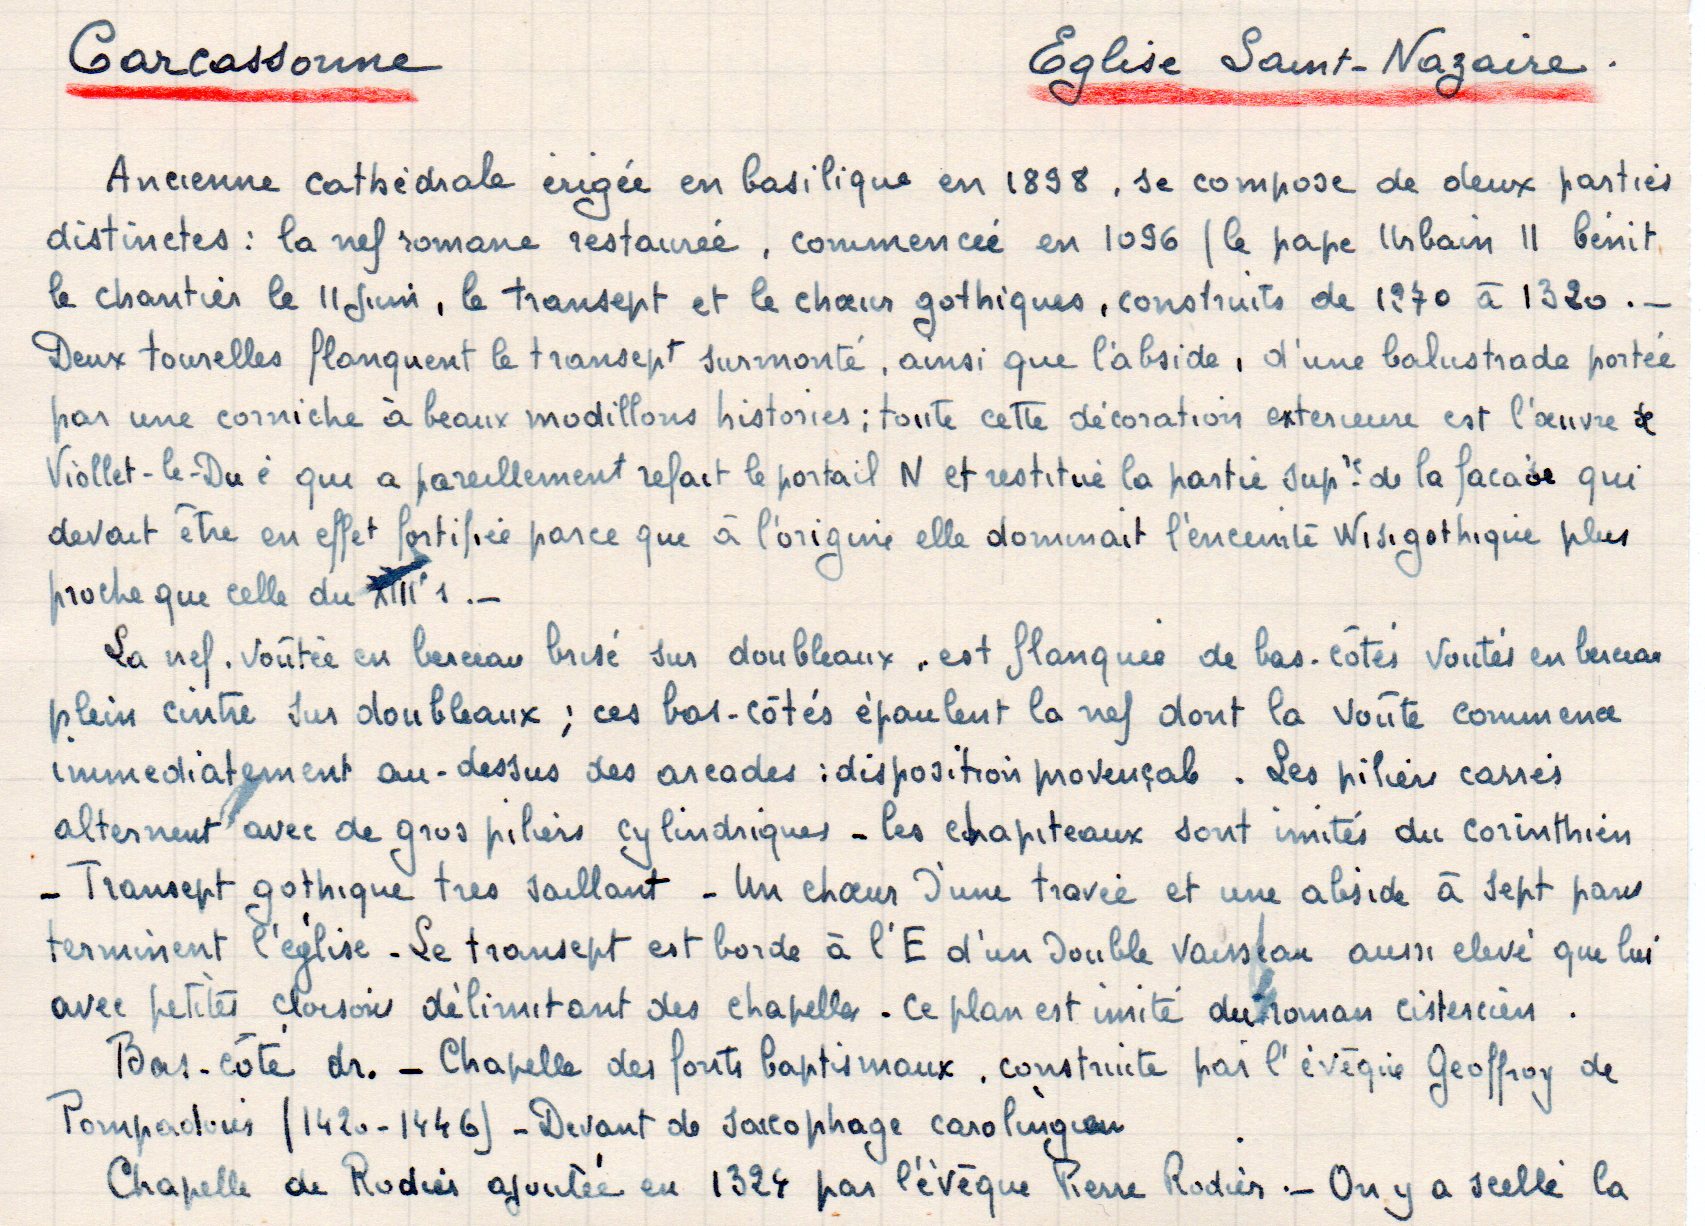 Carcassonne Eglise Saint-Nazaire.
Ancienne cathédrale érigée en basilique en 1898, se compose de deux parties
distinctes : la nef romane restaurée, commencée en 1096 (le pape Urbain II bénit
le chantier le 11 juin, le transept et le chœur gothiques, construits de 1270 à 1320.—
Deux tourelles flanquent le transept surmonté, ainsi que l'abside, d'une balustrade portée
par une corniche à beaux modillons histories ; toute cette décoration exterieure est l'œuvre de
Viollet-le-Duc que a pareillement refait le portail N et restitué la partie supre de la facade qui
devait être en effet fortifiée parce que à l'origine elle dominait l'enceinte Wisigothique plus
proche que celle du XIIIe s.—
La nef, voûtée en berceau brisé sur doubleaux, est flanquée de bas-côtés voutés en berceau
plein cintre sur doubleaux ; ces bas-côtés épaulent la nef dont la voûte commence
immediatement au-dessus des arcades : disposition provençale. Les piliers carrés
alternent avec de gros piliers cylindriques - les chapiteaux sont imités du corinthien
- Transept gothique tres saillant - Un chœur d'une travée et une abside à sept pans
terminent l'église - Le transept est borde à l'E d'un double vaisseau aussi elevé que lui
avec petites cloisons délimitant des chapelles - Ce plan est imité du roman cistercien.
Bas-côté dr. - Chapelle des fonts baptismaux, construite par l'évêque Geoffroy de
Pompadour (1420-1446) - Devant de sarcophage carolingien
Chapelle de Rodier ajoutée en 1324 par l'évêque Pierre Rodier.— On y a scellé la